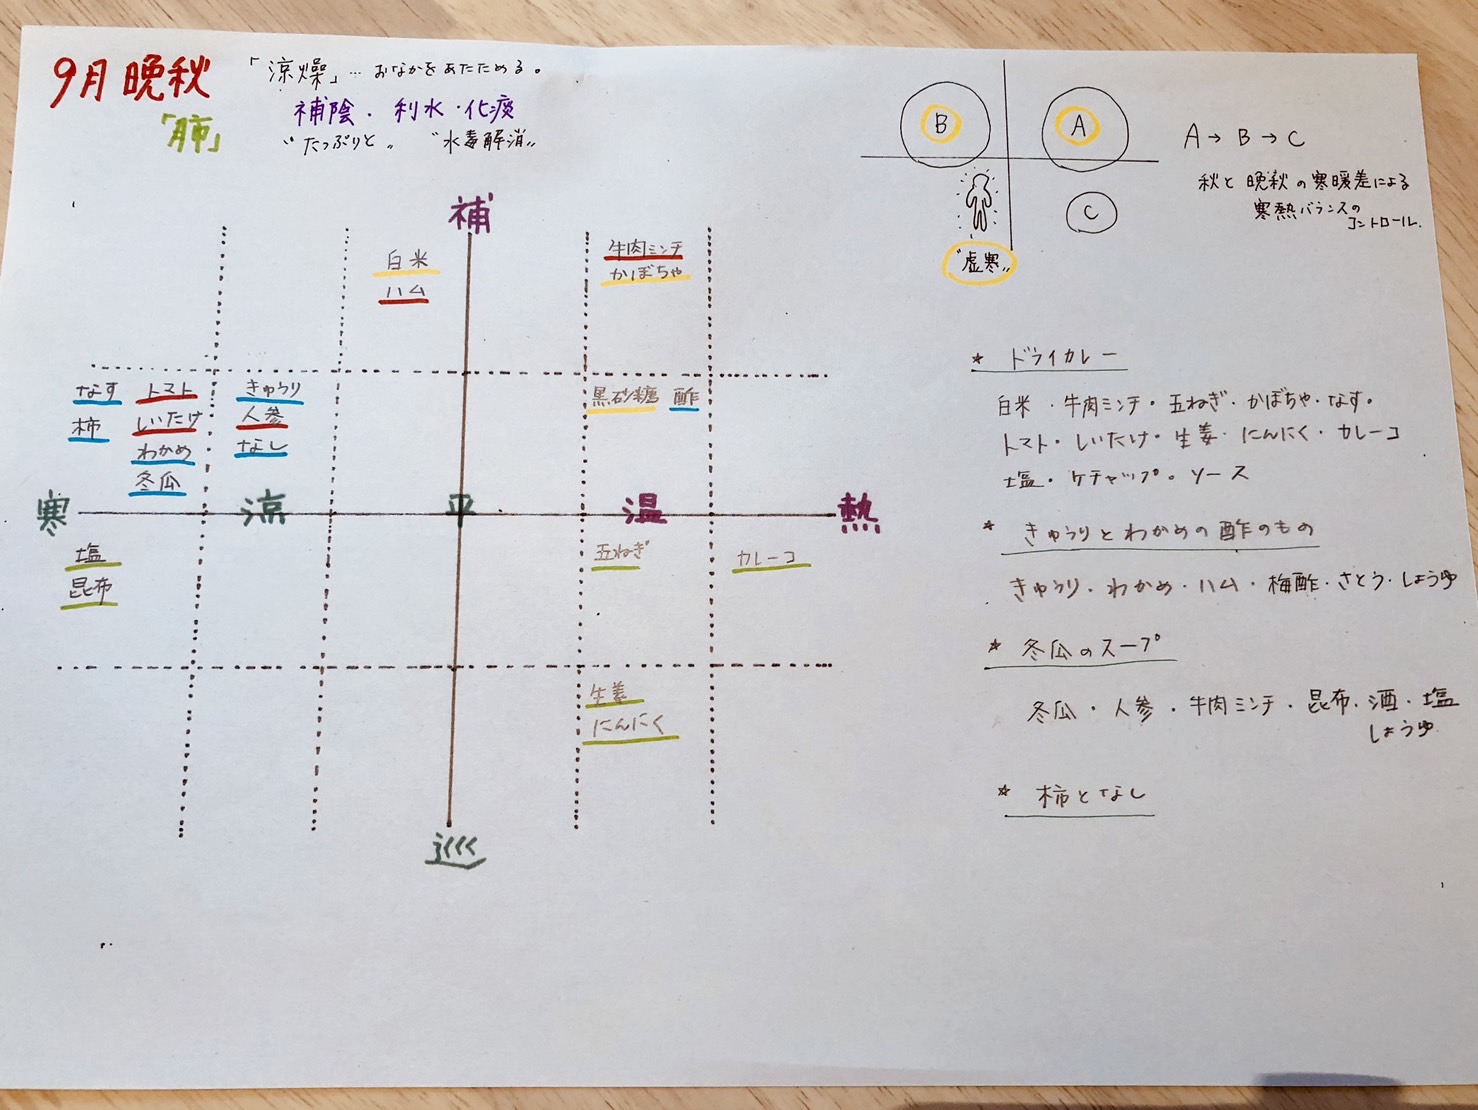 9月 晩秋
「涼燥」… おなかをあたためる。
補陰・利水・化痰
「肺」
“たっぷりと„ “水毒解消„
B
A
A→B→C
秋と晩秋の寒暖差による
寒熱バランスの
コントロール.
C
“虚寒„
補
白米
ハム
牛肉ミンチ
かぼちゃ
なす トマト きゅうり
柿 しいたけ 人参
わかめ なし
冬瓜
黒砂糖 酢
寒 涼 平 温 熱
塩
昆布
五ねぎ
カレーコ
生姜
にんにく
巡
* ドライカレー
白米・牛肉ミンチ・五ねぎ・かぼちゃ・なす。
トマト・しいたけ・生姜・にんにく・カレーコ
塩・ケチャップ・ソース
* きゅうりとわかめの酢のもの
きゅうり・わかめ・ハム・梅酢・さとう・しょうゆ
* 冬瓜のスープ
冬瓜・人参・牛肉ミンチ・昆布・酒・塩
しょうゆ
* 柿となし